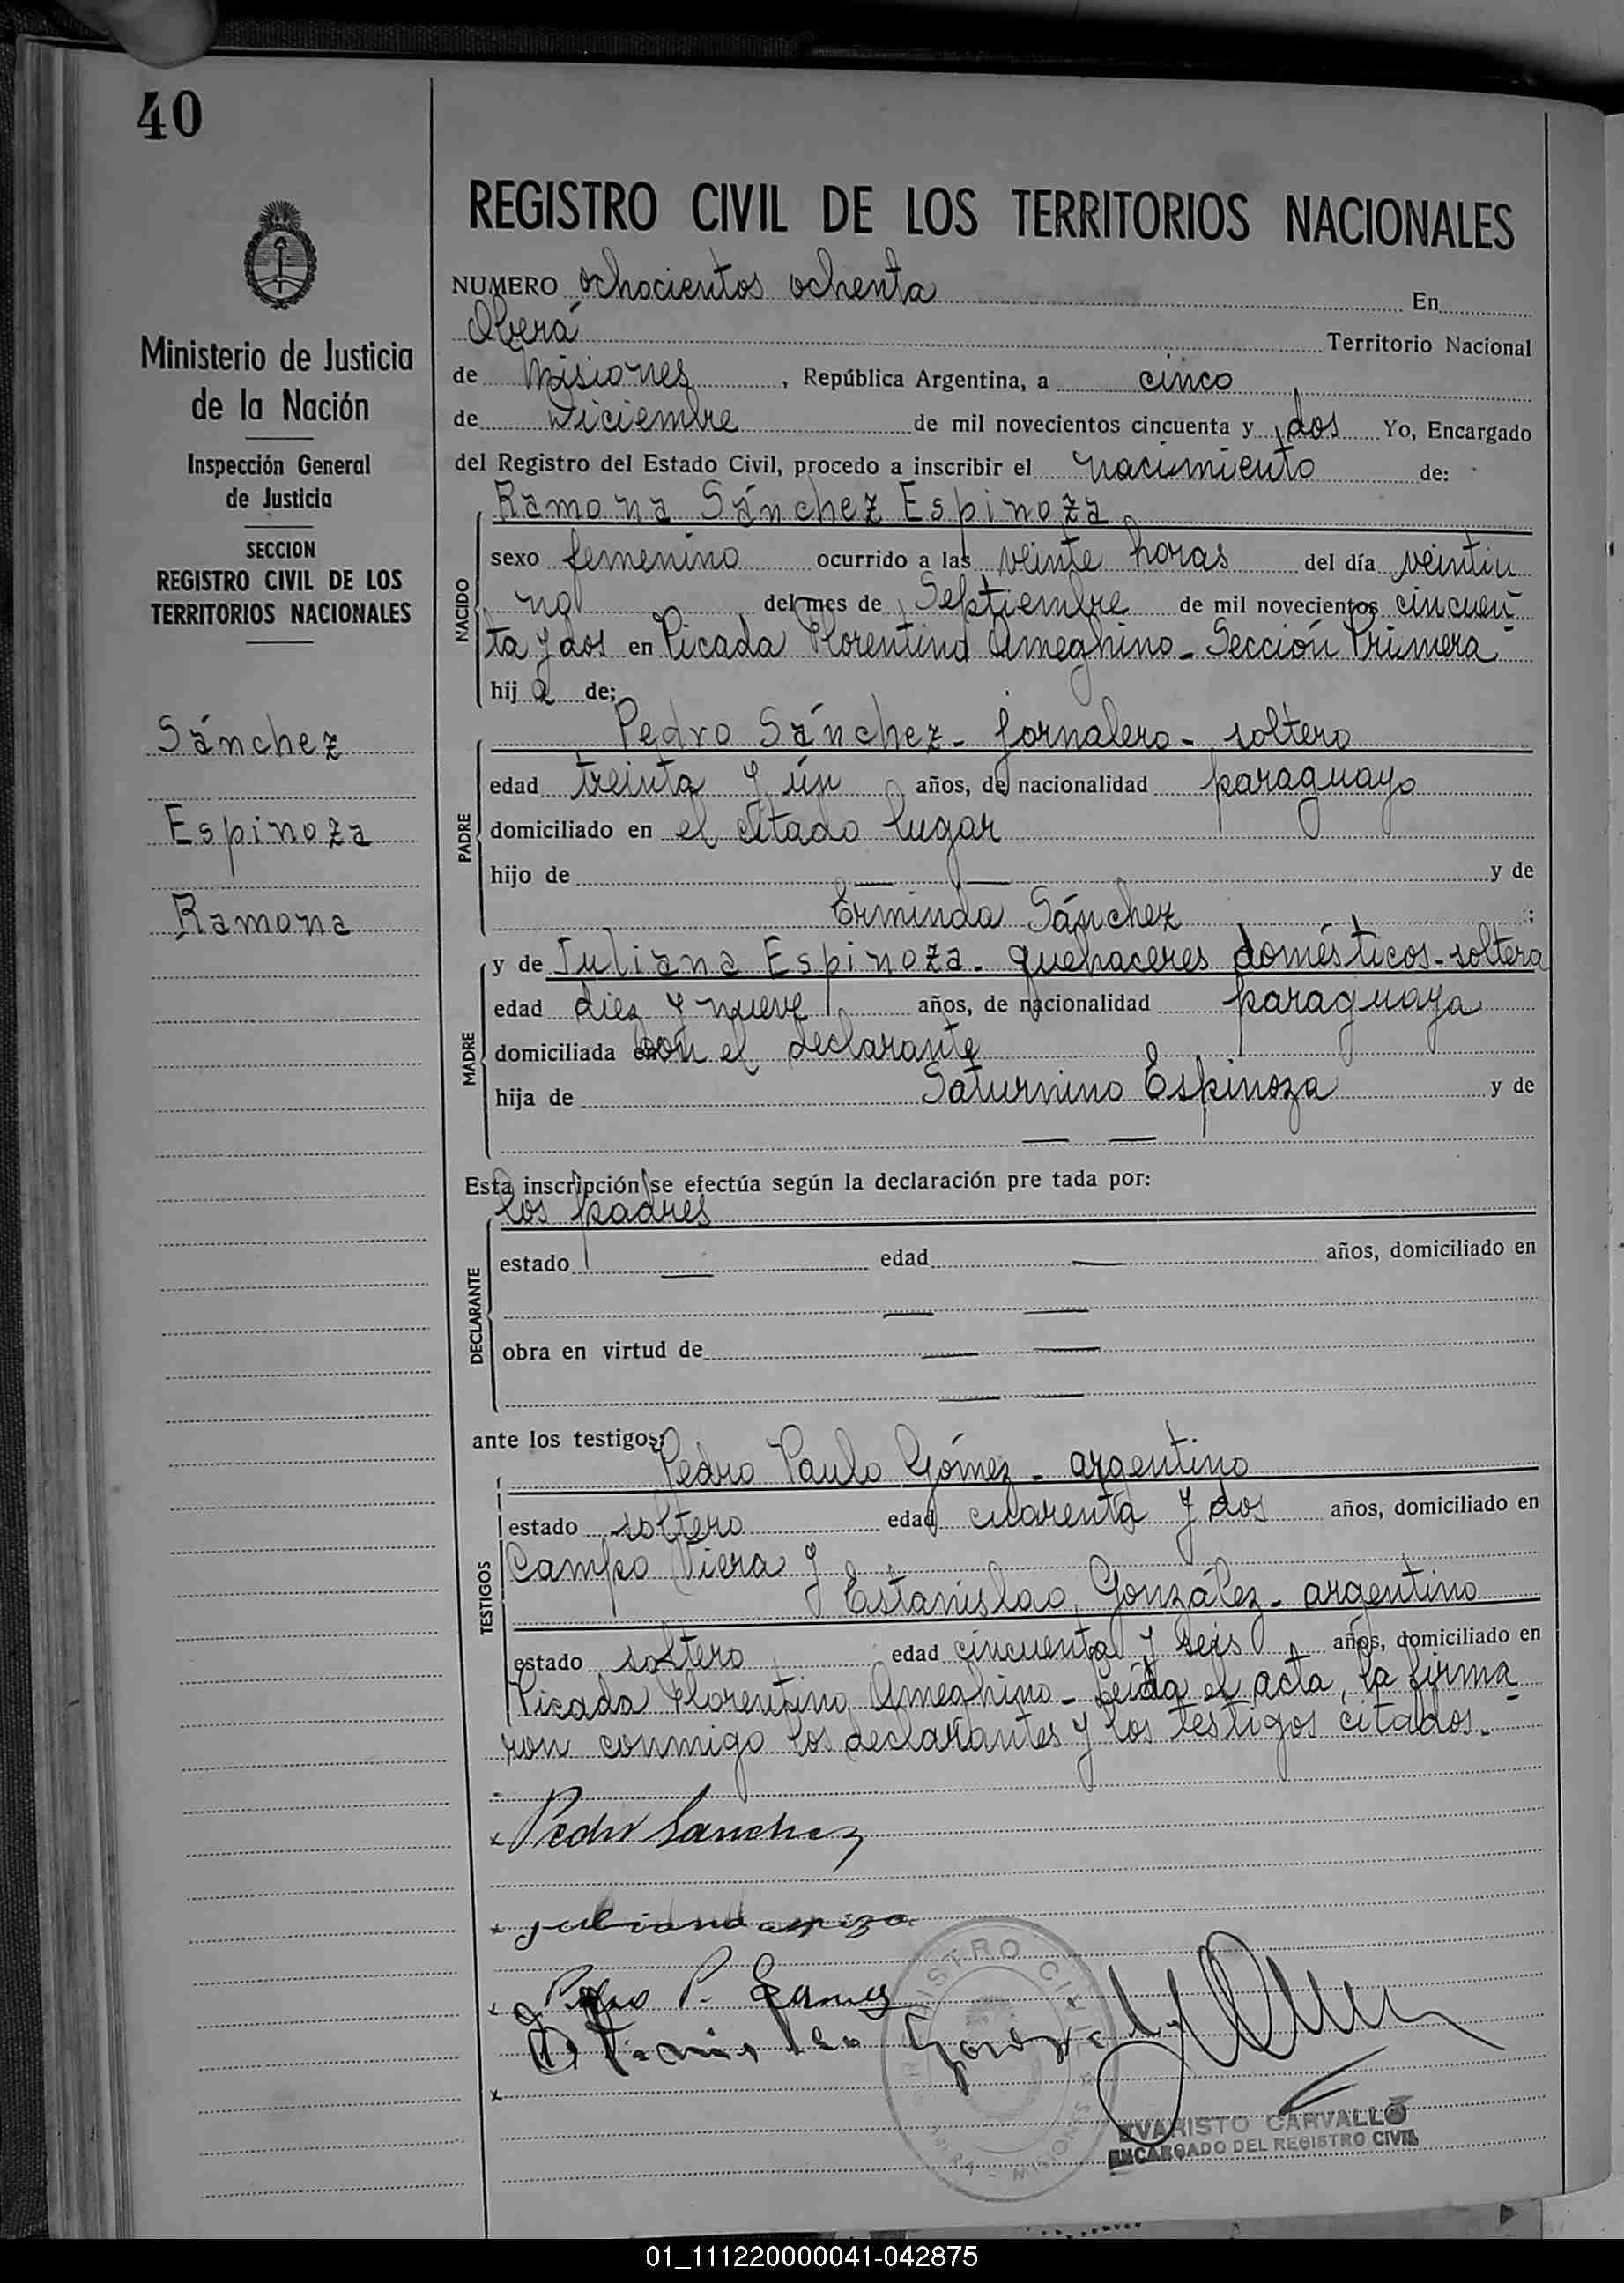 40
Ministerio de Justicia
de la Nación
Inspección General
de Justicia
SECCION
REGISTRO CIVIL DE LOS
TERRITORIOS NACIONALES
Sánchez
Espinoza
Ramona
REGISTRO CIVIL DE LOS TERRITORIOS NACIONALES
NUMERO ochocientos ochenta En
Oberá Territorio Nacional
de Misiones, República Argentina, a cinco
de Diciembre de mil novecientos cincuenta y dos Yo, Encargado
del Registro del Estado Civil, procedo a inscribir el nacimiento de:
Ramona Sánchez Espinoza
NACIDO
sexo femenino ocurrido a las veinte horas del día veintiu
no del mes de Septiembre de mil novecientos cincuen-
ta y dos en Picada Florentino Ameghino - Sección Primera
hij a de;
Pedro Sánchez - jornalero - soltero
PADRE
edad treinta y un años, de nacionalidad paraguayo
domiciliado en el citado lugar
hijo de — — y de
Erminda Sánchez ;
y de Juliana Espinoza - quehaceres domésticos - soltera
MADRE
edad diez y nueve años, de nacionalidad paraguaya
domiciliada con el declarante
hija de Saturnino Espinoza y de
— —
Esta inscripción se efectúa según la declaración pre tada por:
los padres
DECLARANTE
estado — edad — años, domiciliado en
— —
obra en virtud de — —
— —
ante los testigos:
Pedro Paulo Gómez - argentino
TESTIGOS
estado soltero edad cuarenta y dos años, domiciliado en
Campo Viera y
Estanislao González - argentino
estado soltero edad cincuenta y seis años, domiciliado en
Picada Florentino Ameghino - Leída el acta, la firma-
ron conmigo los declarantes y los testigos citados.-
x Pedro Sanchez
x Juliana espiza
x Pedro P. Gomez
Estanislao Gonzalez
x
REGISTRO CIVIL
MISIONES
EVARISTO CARVALLO
ENCARGADO DEL REGISTRO CIVIL
01_111220000041-042875